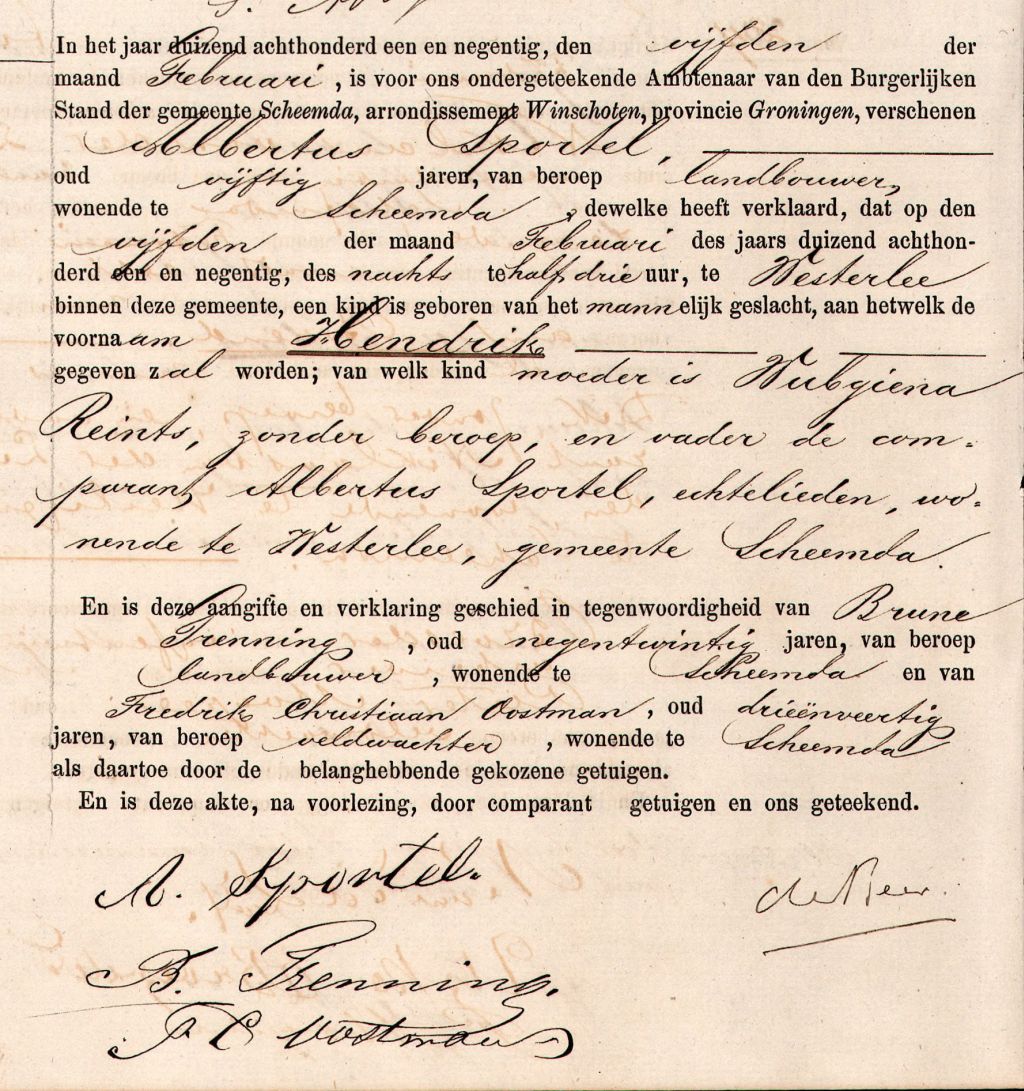 In het jaar duizend achthonderd een en negentig, den vijfden der
maand Februari, is voor ons ondergeteekende Ambtenaar van den Burgerlijken
Stand der gemeente Scheemda, arrondissement Winschoten, provincie Groningen, verschenen
Albertus Sportel,
oud vijftig jaren, van beroep landbouwer,
wonende te Scheemda, dewelke heeft verklaard, dat op den
vijfden der maand Februari des jaars duizend achthon-
derd een en negentig, des nachts te half drie uur, te Westerlee
binnen deze gemeente, een kind is geboren van het mannelijk geslacht, aan hetwelk de
voornaam Hendrik
gegeven zal worden; van welk kind moeder is Wubgiena
Reints, zonder beroep, en vader de com-
parant, Albertus Sportel, echtelieden, wo-
nende te Westerlee, gemeente Scheemda.
En is deze aangifte en verklaring geschied in tegenwoordigheid van Brune
Trenning, oud negentwintig jaren, van beroep
landbouwer, wonende te Scheemda en van
Fredrik Christiaan Oostman, oud drieënveertig
jaren, van beroep veldwachter, wonende te Scheemda
als daartoe door de belanghebbende gekozene getuigen.
En is deze akte, na voorlezing, door comparant getuigen en ons geteekend.
A. Sportel.
de Beer.
B. Trenning.
F C Oostman